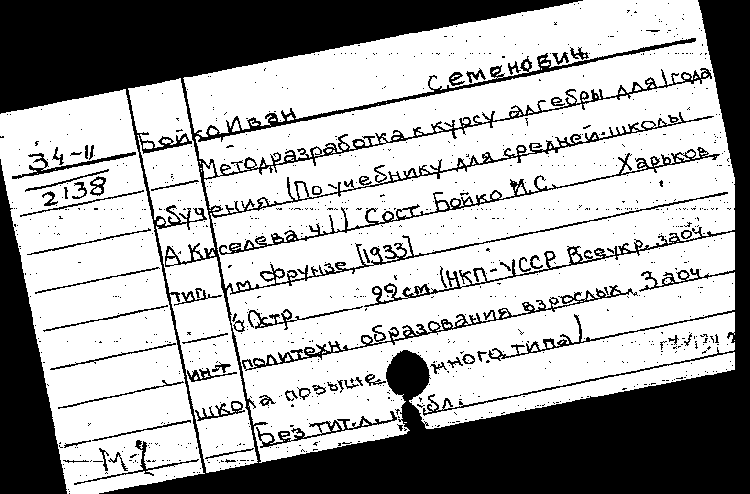 34-11
2138
Бойко, Иван Семенович
Метод. разработка к курсу алгебры для 1 года
обучения. (По учебнику для средней школы
А. Киселева, ч. I). Сост. Бойко И.С. Харьков,
тип. им. Фрунзе, [1933].
6 стр. 22 см. (НКП-УССР Всеукр. заоч.
ин-т политехн. образования взрослых. Заоч.
школа повыше много типа).
Без тит. л. обл.
М-2